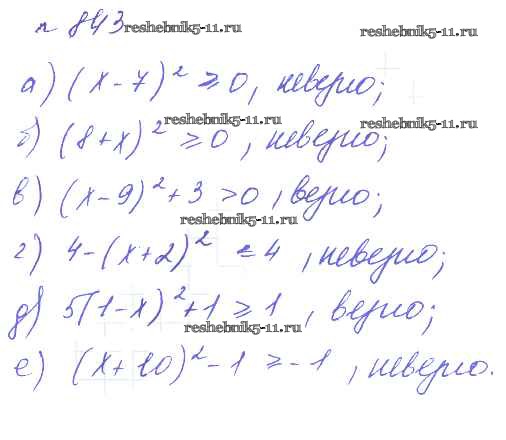 № 843 reshebnik5-11.ru reshebnik5-11.ru
а) (x-7)² ≥ 0, неверно;
reshebnik5-11.ru reshebnik5-11.ru
б) (8+x)² ≥ 0, неверно;
в) (x-9)² + 3 > 0, верно;
reshebnik5-11.ru
г) 4-(x+2)² = 4, неверно;
д) 5(1-x)² + 1 ≥ 1, верно;
reshebnik5-11.ru
е) (x+10)² - 1 ≥ -1, неверно.